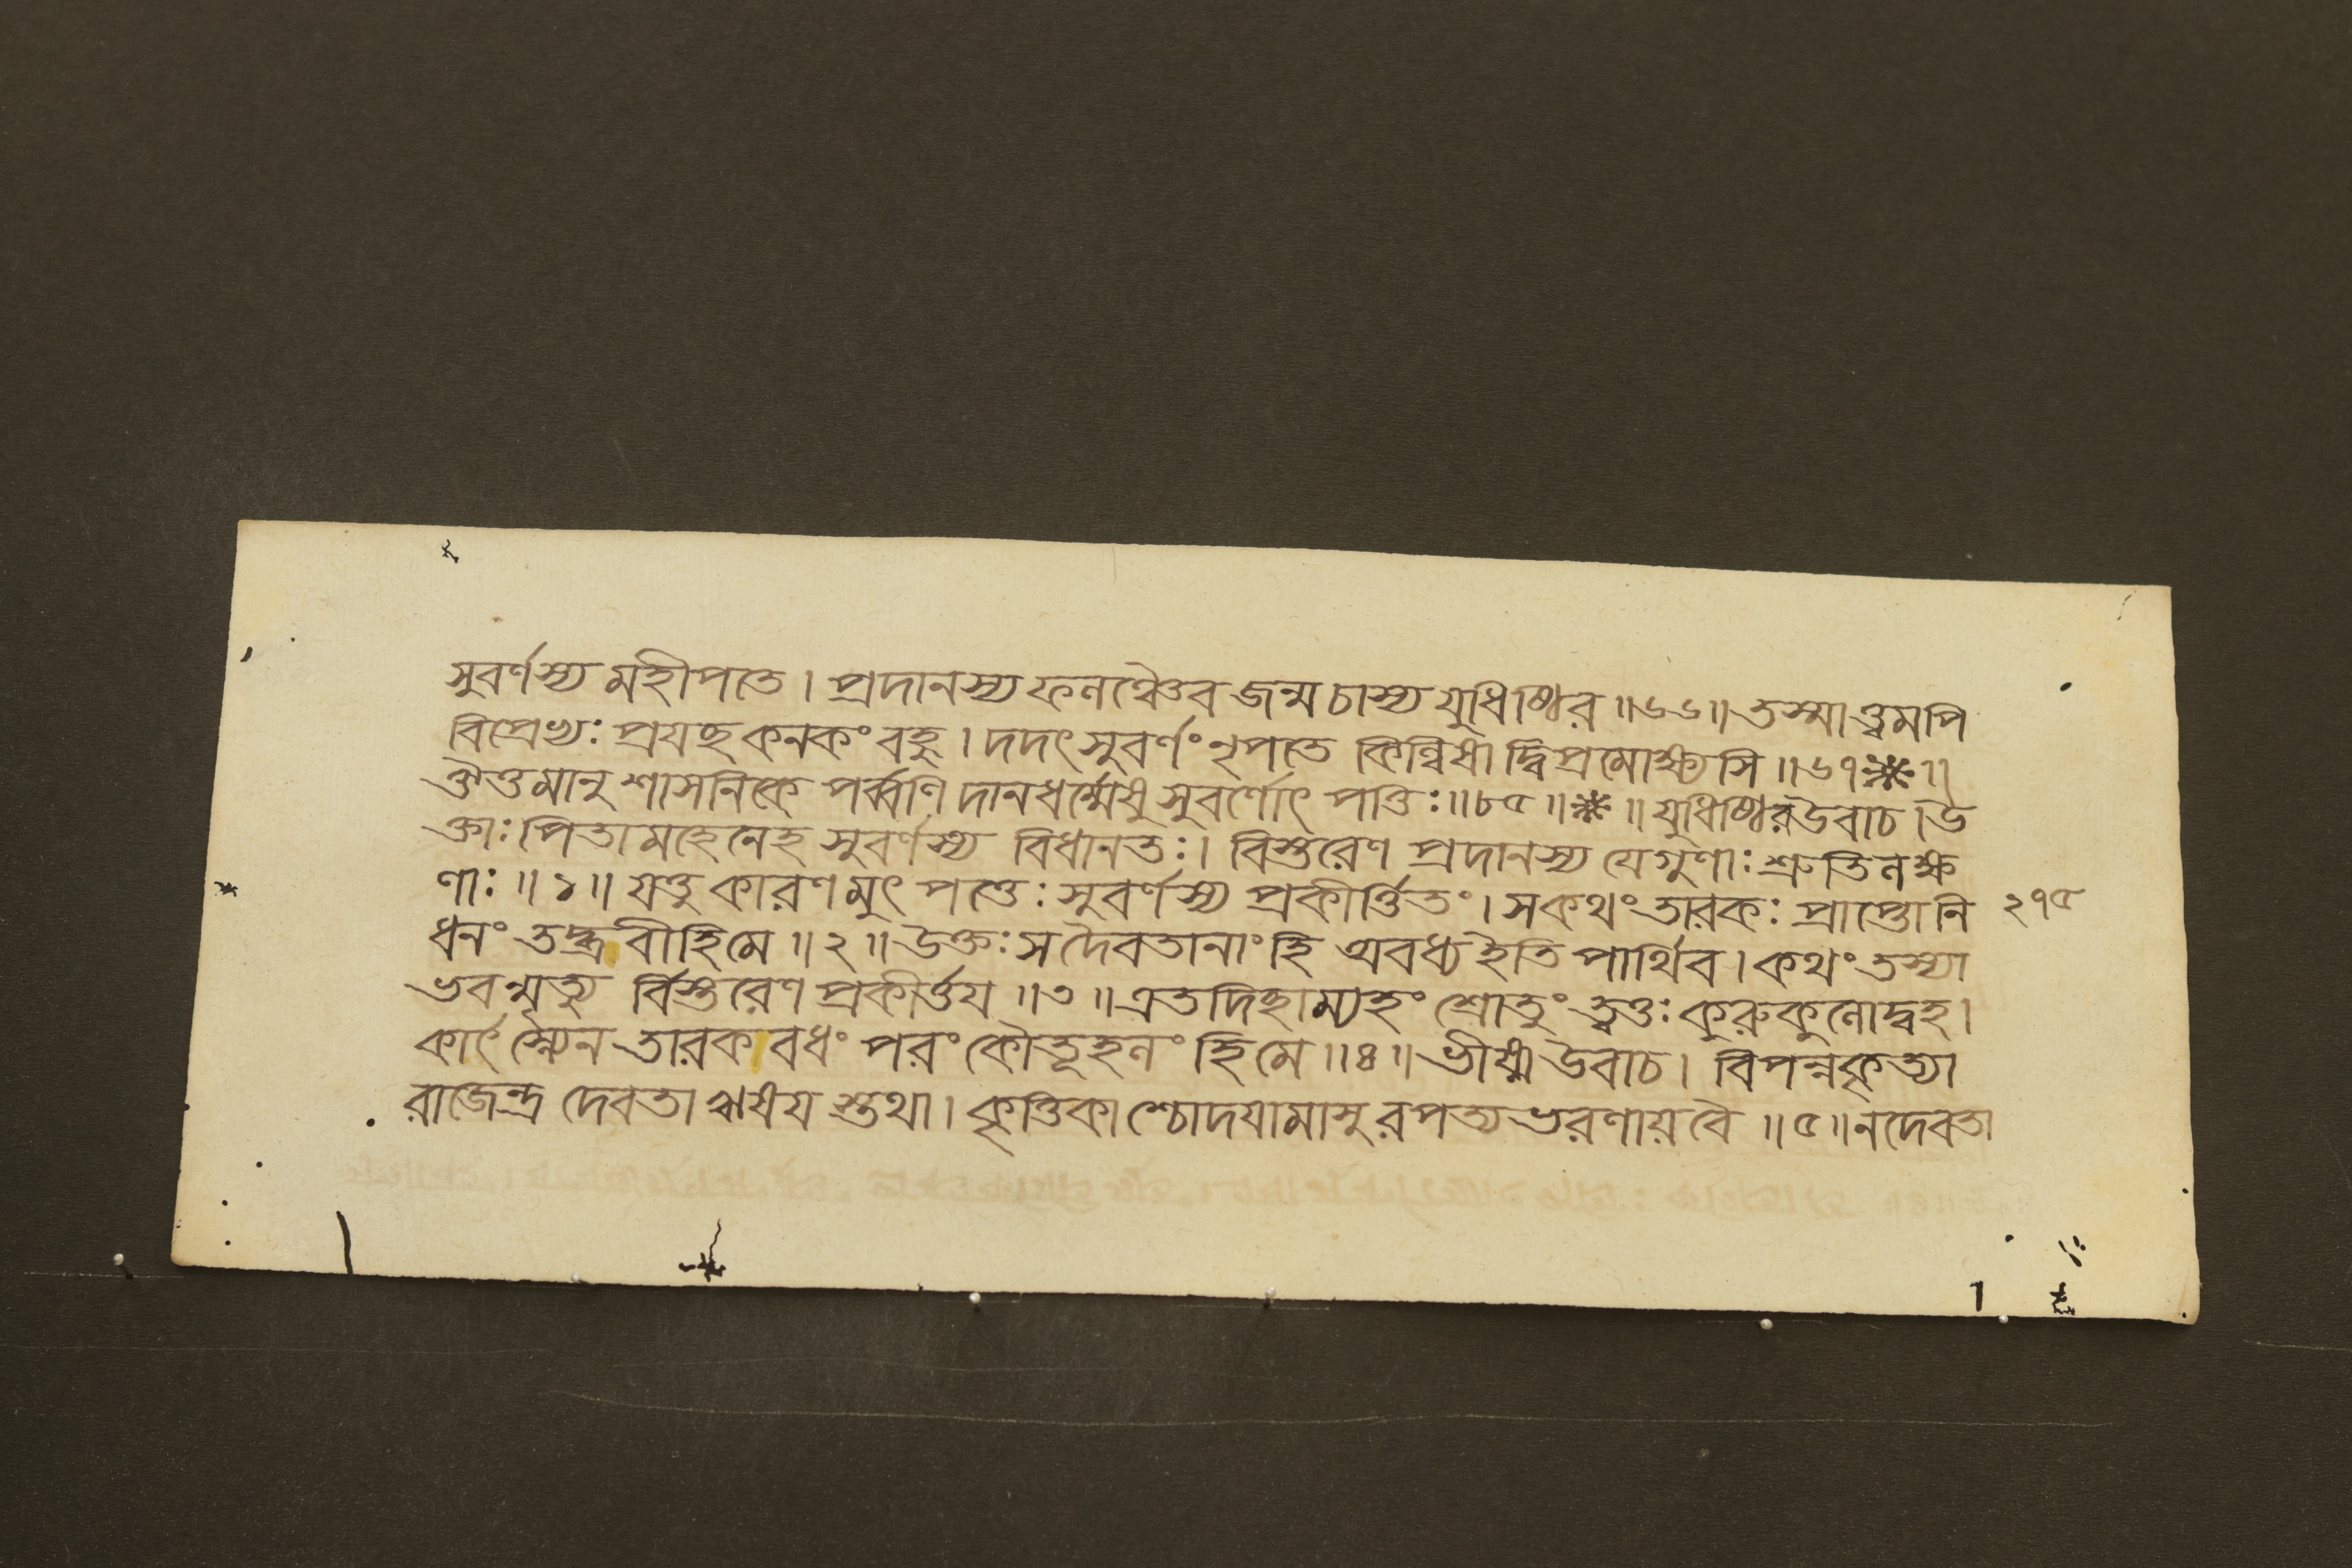 সুবর্ণস্য মহীপতে । প্রদানস্য ফলঞ্চৈব জন্ম চাস্য যুধিষ্ঠির ॥৬৬॥ তস্মাত্ত্বমপি
বিপ্রেভ্যঃ প্রযচ্ছ কনকং বহু । দদৎ সুবর্ণং নৃপতে কিল্বিষাদ্বিপ্রমোক্ষ্যসি ॥৬৭※॥
ঐত্তমানুশাসনিকে পর্ব্বণি দানধর্ম্মেষু সুবর্ণোৎপত্তিঃ ॥৮৫॥※॥ যুধিষ্ঠির উবাচ । উ
ক্তাঃ পিতামহেনেহ সুবর্ণস্য বিধানতঃ । বিস্তরেণ প্রদানস্য যে গুণাঃ শ্রুতিলক্ষ
ণাঃ ॥১॥ যত্তু কারণমুৎপত্তেঃ সুবর্ণস্য প্রকীর্ত্তিতং । স কথং তারকঃ প্রাপ্তো নি
২৭৫
ধনং তদ্ব্রবীহি মে ॥২॥ উক্তঃ স দৈবতানাং হি অবধ্য ইতি পার্থিব । কথং তস্যা
ভবন্মৃত্যু র্বিস্তরেণ প্রকীর্ত্তয ॥৩॥ এতদিচ্ছাম্যহং শ্রোতুং ত্বত্তঃ কুরুকুলোদ্বহ ।
কার্ৎস্ন্যেন তারকবধং পরং কৌতূহলং হি মে ॥৪॥ ভীষ্ম উবাচ । বিপন্নকৃত্যা
রাজেন্দ্র দেবতা ঋষযস্তথা । কৃত্তিকাশ্চোদযামাসুরপত্যভরণায় বৈ ॥৫॥ ন দেবতা